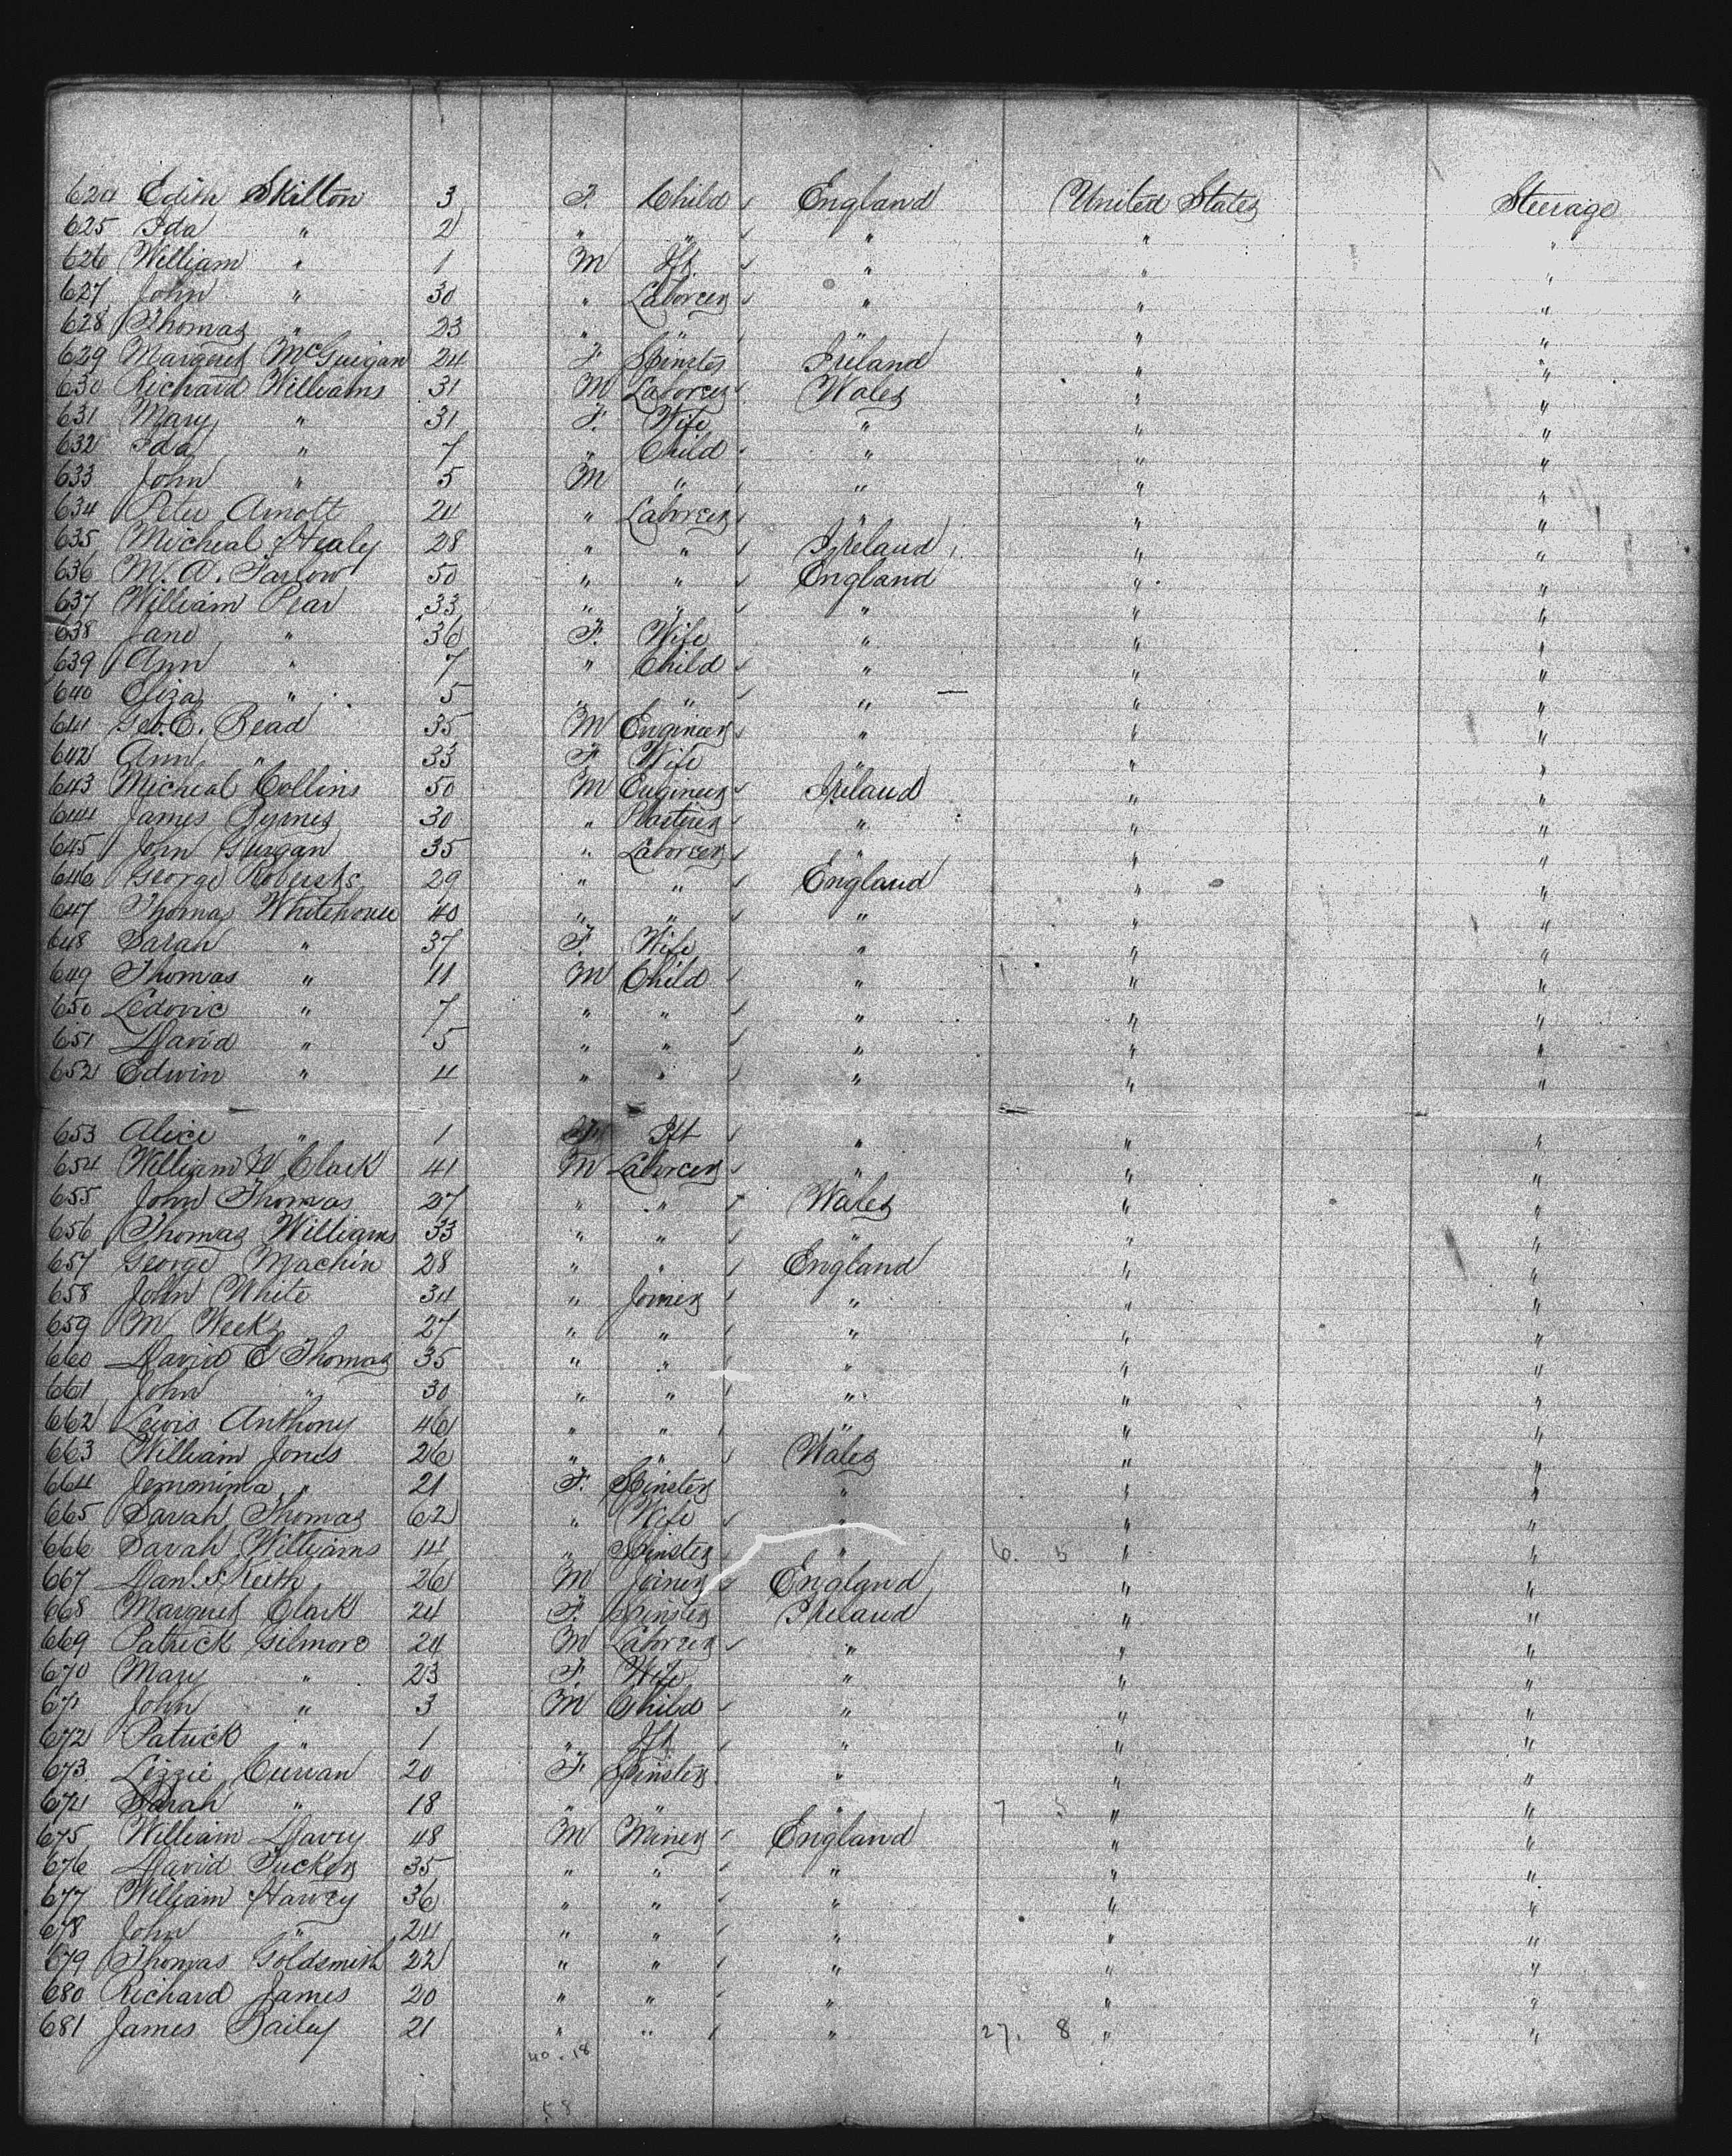 624 Edith Skilton 3 F. Child England United States Steerage
625 Ida " 2 " " " " "
626 William " 1 M Ift. " " "
627 John " 30 " Laborer " " "
628 Thomas " 23 " " " " "
629 Margaret McGuigan 24 F Spinster Ireland " "
630 Richard Williams 31 M Laborer Wales " "
631 Mary " 31 F. Wife " " "
632 Ida " 7 " Child " " "
633 John " 5 M " " " "
634 Peter Arnott 24 " Laborer " " "
635 Micheal Healy 28 " " Ireland " "
636 M. A. Farlow 50 " " England " "
637 William Pear 33 " " " " "
638 Jane " 36 F. Wife " " "
639 Ann " 7 " Child " " "
640 Eliza " 5 " " " " "
641 Geo. E. Read 35 M Engineer " " "
642 Ann " 33 F Wife " " "
643 Micheal Collins 50 M Engineer Ireland " "
644 James Byrnes 30 " Plasterer " " "
645 John Gurgan 35 " Laborer " " "
646 George Roberts 29 " " England " "
647 Thomas Whitehouse 40 " " " " "
648 Sarah " 37 F. Wife " " "
649 Thomas " 11 M Child " " "
650 Ledovic " 7 " " " " "
651 David " 5 " " " " "
652 Edwin " 4 " " " " "
653 Alice " 1 F Ift " " "
654 William W Clark 41 M Laborer " " "
655 John Thomas 27 " " Wales " "
656 Thomas Williams 33 " " " " "
657 George Machin 28 " " England " "
658 John White 34 " Joiner " " "
659 M Weeks 27 " " " " "
660 David E Thomas 35 " " " " "
661 John " 30 " " " " "
662 Lewis Anthony 46 " " " " "
663 William Jones 26 " " Wales " "
664 Jemmima " 21 F. Spinster " " "
665 Sarah Thomas 62 " Wife " " "
666 Sarah Williams 14 " Spinster " 6. 5 " "
667 Danl. 26 M Joiner England " "
668 Margaret Clark 24 F. Spinster Ireland " "
669 Patrick Gilmore 24 M Laborer " " "
670 Mary " 23 F. Wife " " "
671 John " 3 M Child " " "
672 Patrick " 1 " Ift " " "
673 Lizzie Curran 20 F Spinster " " "
674 Sarah " 18 " " " 7 5 " "
675 William Davey 48 M Miner England " "
676 David Tucker 35 " " " " "
677 William Harvey 36 " " " " "
678 John " 24 " " " " "
679 Thomas Goldsmith 22 " " " " "
680 Richard James 20 " " " " "
681 James Bailey 21 " " " 27. 8 " "
40. 18
58